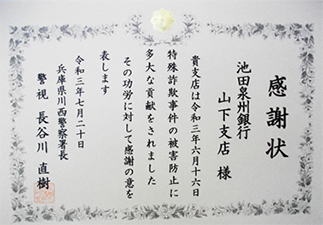 感謝状
池田泉州銀行
山下支店 様
貴支店は令和三年六月十六日
特殊詐欺事件の被害防止に
多大な貢献をされました
その功労に対して感謝の意を
表します
令和三年七月二十日
兵庫県川西警察署長
警視 長谷川 直樹